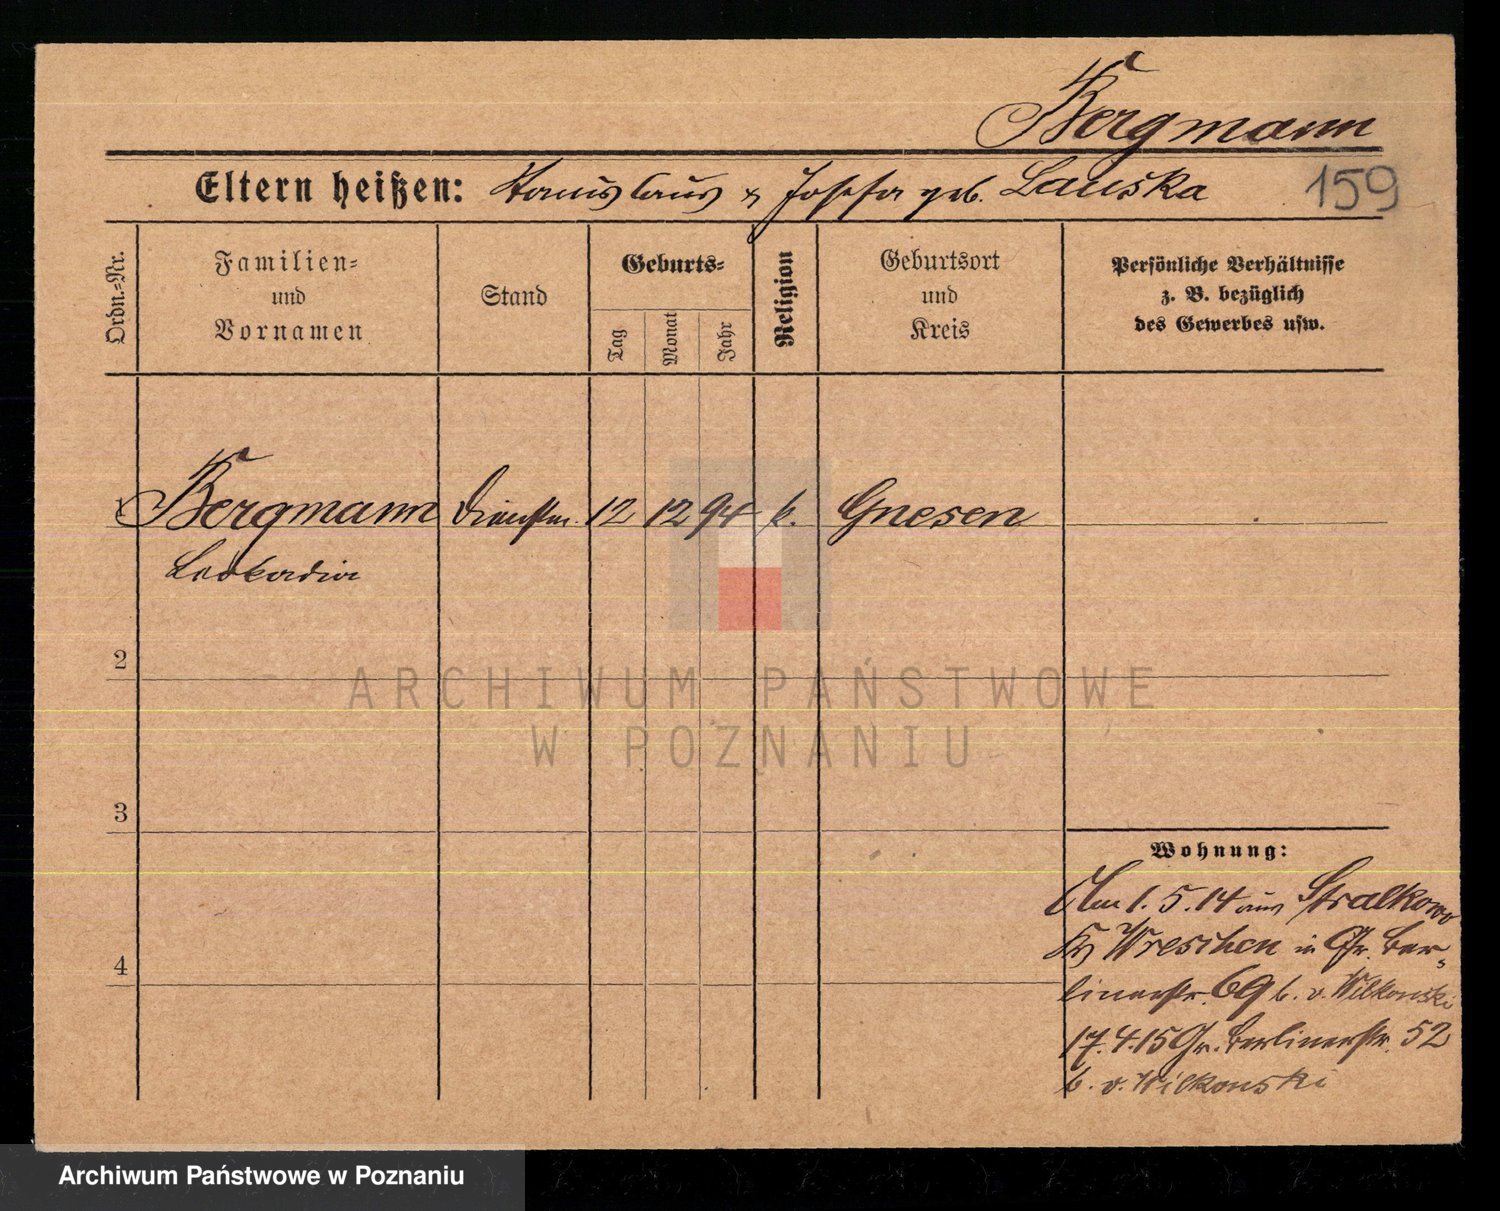 Bergmann
Eltern heißen: Stanislaus & Josefa geb. Lauska 159
Ordn.-Nr.
Familien-
und
Vornamen
Stand
Geburts-
Tag
Monat
Jahr
Religion
Geburtsort
und
Kreis
Persönliche Verhältnisse
z. B. bezüglich
des Gewerbes usw.
1 Bergmann Dienstm. 12 12 94 k. Gnesen
Leokadia
2
3
4
Wohnung:
Am 1. 5. 14 aus Stralkowo
Kr Wreschen in Gr. Ber-
linerstr. 69 b. v. Wilkonski
17.4.15 Gr. Berlinerstr. 52
b. v. Wilkonski
ARCHIWUM PAŃSTWOWE
W POZNANIU
Archiwum Państwowe w Poznaniu